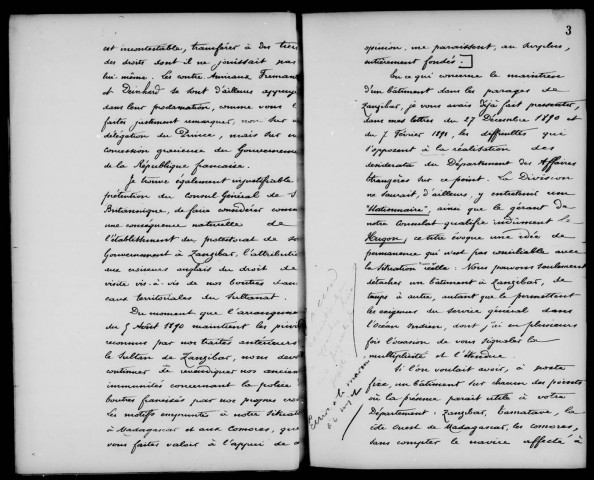 est incontestable, transférer à des tiers
des droits dont il ne jouissait pas
lui-même. Les contre Amiraux Fremantle
et Deinhard se sont d'ailleurs appuyés
dans leur proclamation, comme vous l'
faites justement remarquer, non sur
délégation du Prince, mais sur
concession gracieuse du Gouvernement
de la République française.
Je trouve également injustifiable
prétention du Consul Général de S.
Britannique, de faire considérer comme
une conséquence naturelle de
l'établissement du protectorat de son
Gouvernement à Zanzibar, l'attribution
aux croiseurs anglais du droit de
visite vis-à-vis de nos boutres dans
eaux territoriales du Sultanat.
Du moment que l'arrangement
du 5 Août 1890 maintient les privi
reconnus par nos traités antérieurs
le Sultan de Zanzibar, nous devons
continuer de revendiquer nos anciennes
immunités concernant la police
boutres francisés par nos propres
Les motifs empruntés à notre situation
à Madagascar et aux Comores, que
vous faites valoir à l'appui de
3
opinion, me paraissent, au surplus,
entièrement fondés.
En ce qui concerne le maintien
d'un bâtiment dans les parages de
Zanzibar, je vous avais déjà fait pressentir,
dans mes lettres du 27 Décembre 1890 et
du 7 Février 1891, les difficultés qui
s'opposent à la réalisation des
desiderata du Département des Affaires
Etrangères sur ce point. La Division
ne saurait, d'ailleurs, y entretenir un
"Stationnaire", ainsi que le gérant de
notre consulat qualifie indûment le
Hugon, ce titre évoque une idée de
permanence qui n'est pas conciliable avec
la situation réelle : Nous pouvons seulement
détacher un bâtiment à Zanzibar, de
temps à autre, autant que le permettent
les exigences du service général dans
l'Océan Indien, dont j'ai eu plusieurs
fois l'occasion de vous signaler la
multiplicité et l'étendue.
Si l'on voulait avoir, à poste
fixe, un bâtiment sur chacun des points
où la présence parait utile à votre
Département : Zanzibar, Tamatave, la
côte Ouest de Madagascar, les Comores,
sans compter le navire affecté à
Ecrire à la marine